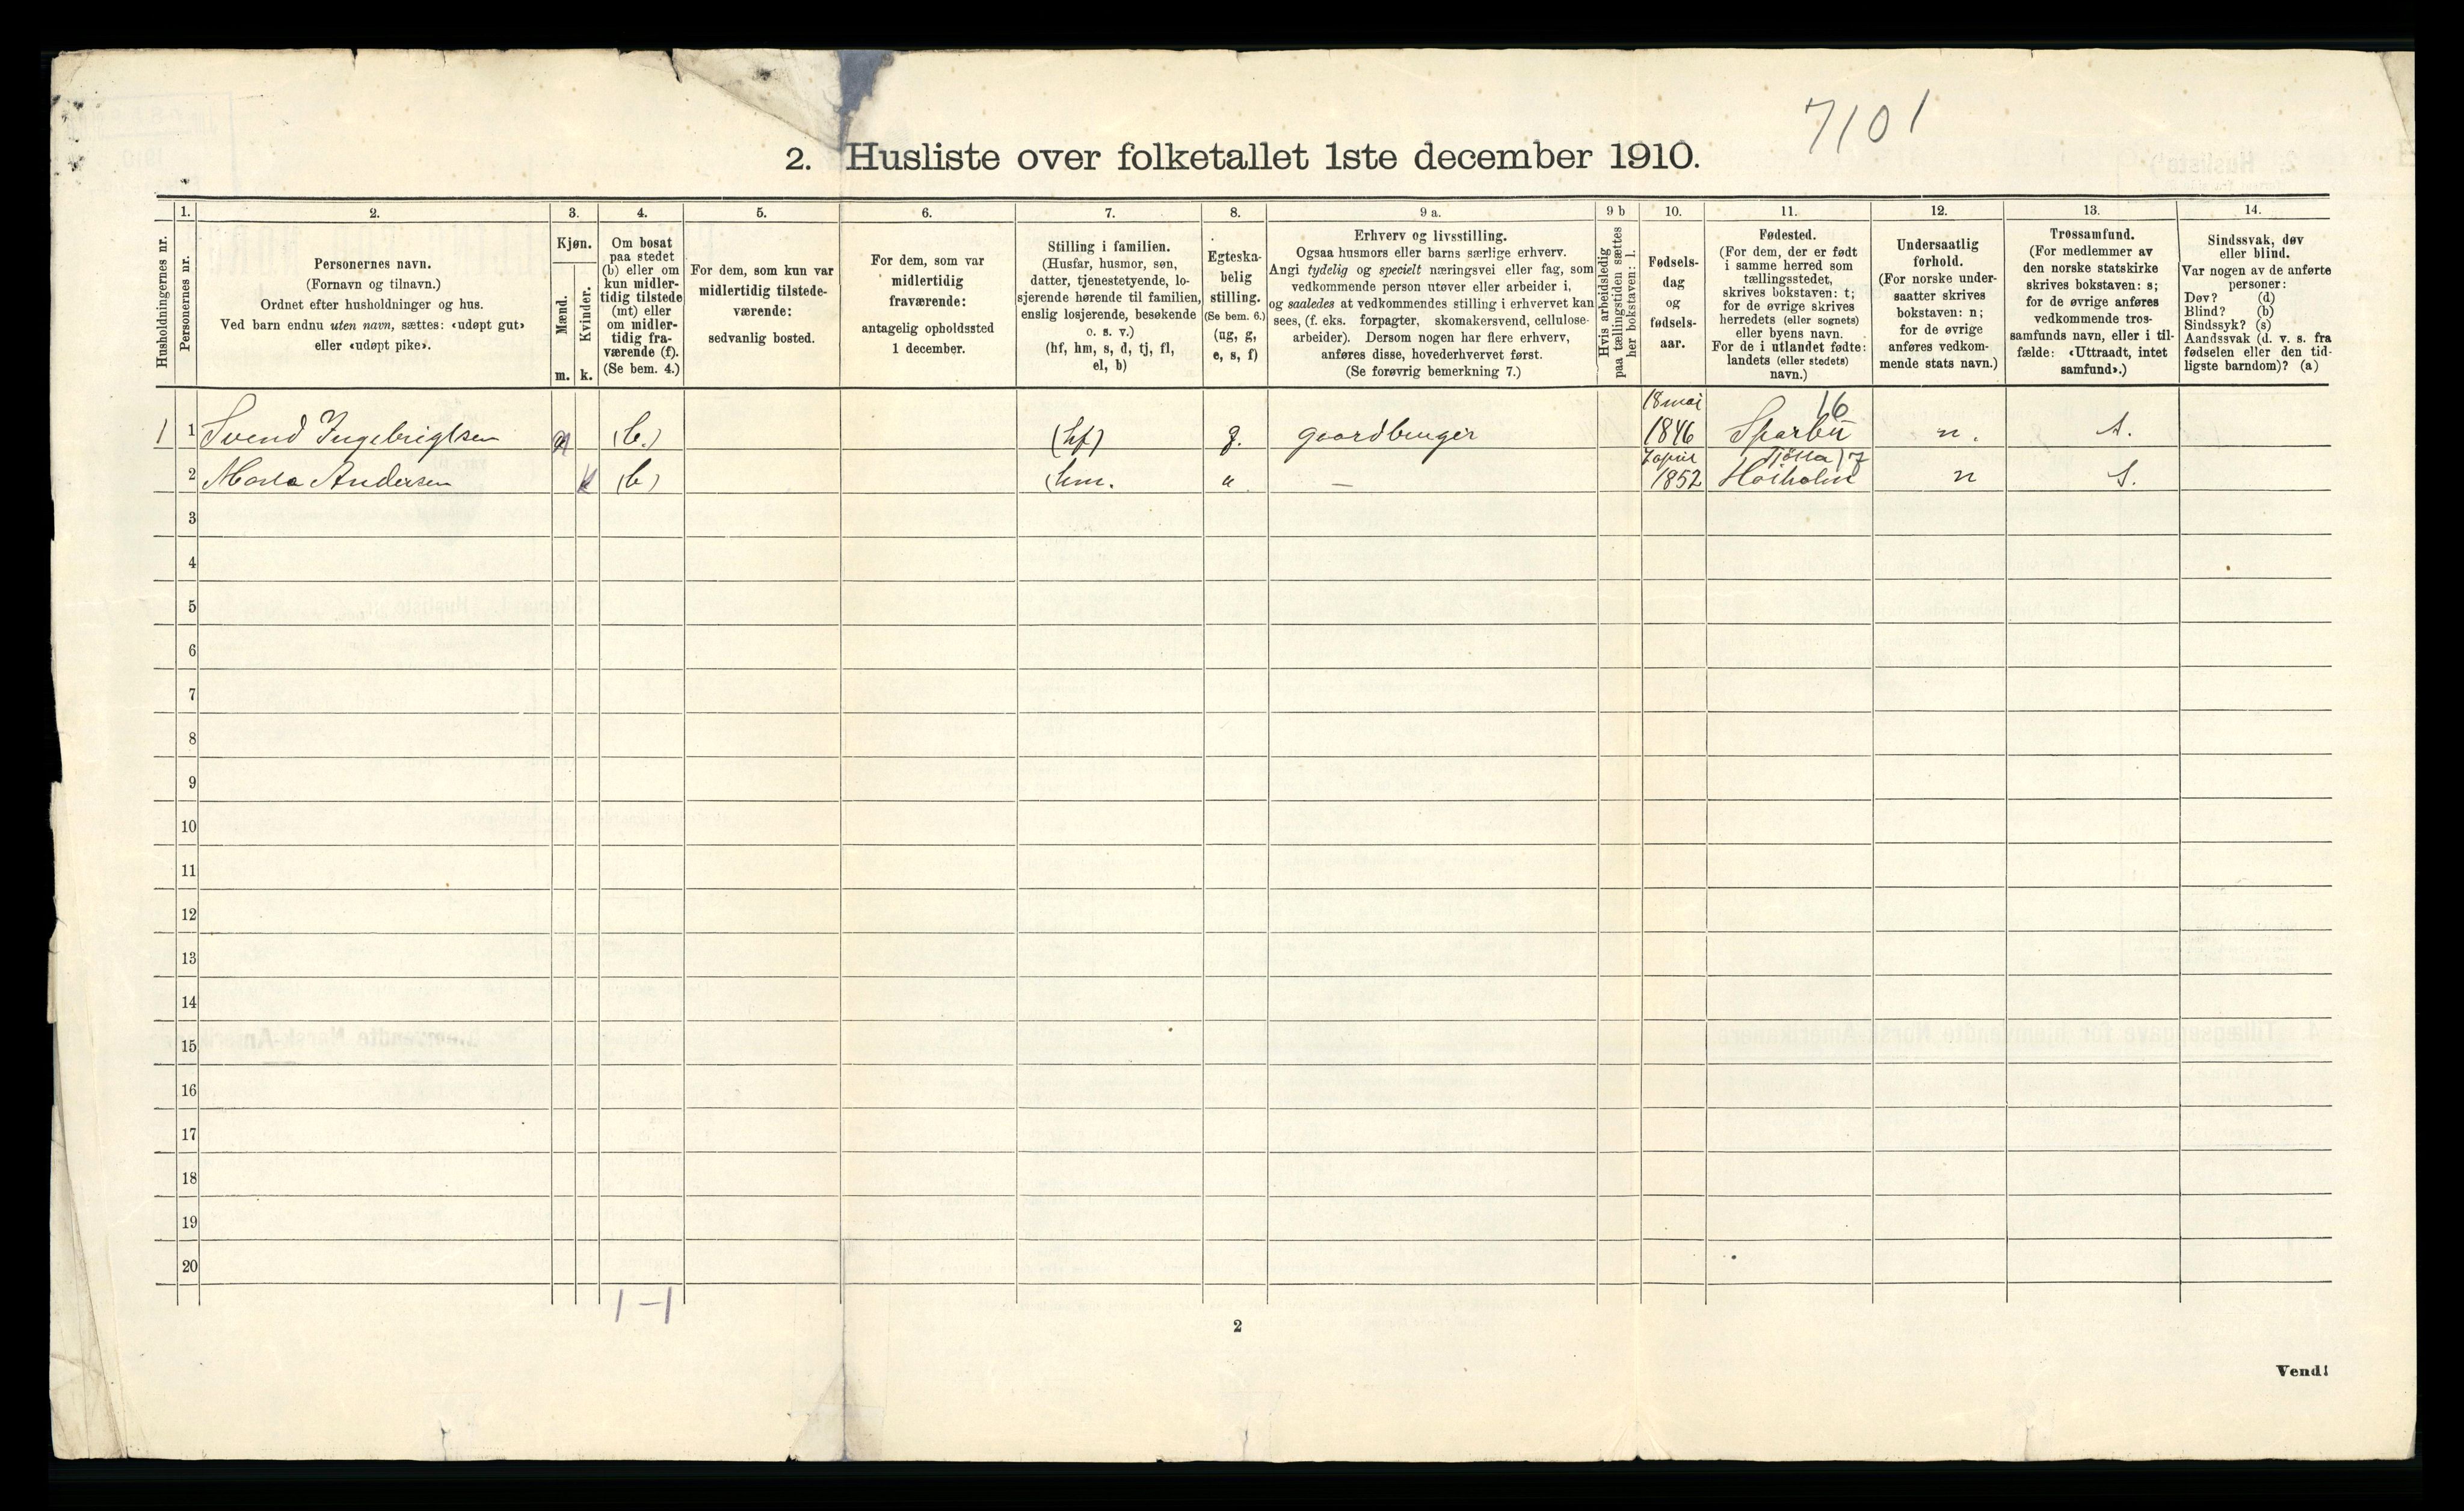 7101
2. Husliste over folketallet 1ste december 1910.
Husholdningernes nr.
1.
Personernes nr.
2.
Personernes navn.
(Fornavn og tilnavn.)
Ordnet efter husholdninger og hus.
Ved barn endnu uten navn, sættes: «udøpt gut»
eller «udøpt pike».
3.
Kjøn.
Mænd.
Kvinder.
m. k.
4.
Om bosat
paa stedet
(b) eller om
kun midler-
tidig tilstede
(mt) eller
om midler-
tidig fra-
værende (f).
(Se bem. 4.)
5.
For dem, som kun var
midlertidig tilstede-
værende:
sedvanlig bosted.
6.
For dem, som var
midlertidig
fraværende:
antagelig opholdssted
1 december.
7.
Stilling i familien.
(Husfar, husmor, søn,
datter, tjenestetyende, lo-
sjerende hørende til familien,
enslig losjerende, besøkende
o. s. v.)
(hf, hm, s, d, tj, fl,
el, b)
8.
Egteska-
belig
stilling.
(Se bem. 6.)
(ug, g,
e, s, f)
9 a.
Erhverv og livsstilling.
Ogsaa husmors eller barns særlige erhverv.
Angi tydelig og specielt næringsvei eller fag, som
vedkommende person utøver eller arbeider i,
og saaledes at vedkommendes stilling i erhvervet kan
sees, (f. eks. forpagter, skomakersvend, cellulose-
arbeider). Dersom nogen har flere erhverv,
anføres disse, hovederhvervet først.
(Se forøvrig bemerkning 7.)
9 b
Hvis arbeidsledig
paa tællingstiden sættes
her bokstaven: l.
10.
Fødsels-
dag
og
fødsels-
aar.
11.
Fødested.
(For dem, der er født
i samme herred som
tællingsstedet,
skrives bokstaven: t;
for de øvrige skrives
herredets (eller sognets)
eller byens navn.
For de i utlandet fødte:
landets (eller stedets)
navn.)
12.
Undersaatlig
forhold.
(For norske under-
saatter skrives
bokstaven: n;
for de øvrige
anføres vedkom-
mende stats navn.)
13.
Trossamfund.
(For medlemmer av
den norske statskirke
skrives bokstaven: s;
for de øvrige anføres
vedkommende tros-
samfunds navn, eller i til-
fælde: «Uttraadt, intet
samfund».)
14.
Sindssvak, døv
eller blind.
Var nogen av de anførte
personer:
Døv? (d)
Blind? (b)
Sindssyk? (s)
Aandssvak (d. v. s. fra
fødselen eller den tid-
ligste barndom)? (a)
18 mai 16
1 1 Svend Ingebrigtsen m (b.) (hf) g. gaardbruger 1846 Sparbu n. s.
7 april 17
2 Andersen k (b) (hm. 1852 n s.
3
4
5
6
7
8
9
10
11
12
13
14
15
16
17
18
19
20
1 - 1
2
Vend!